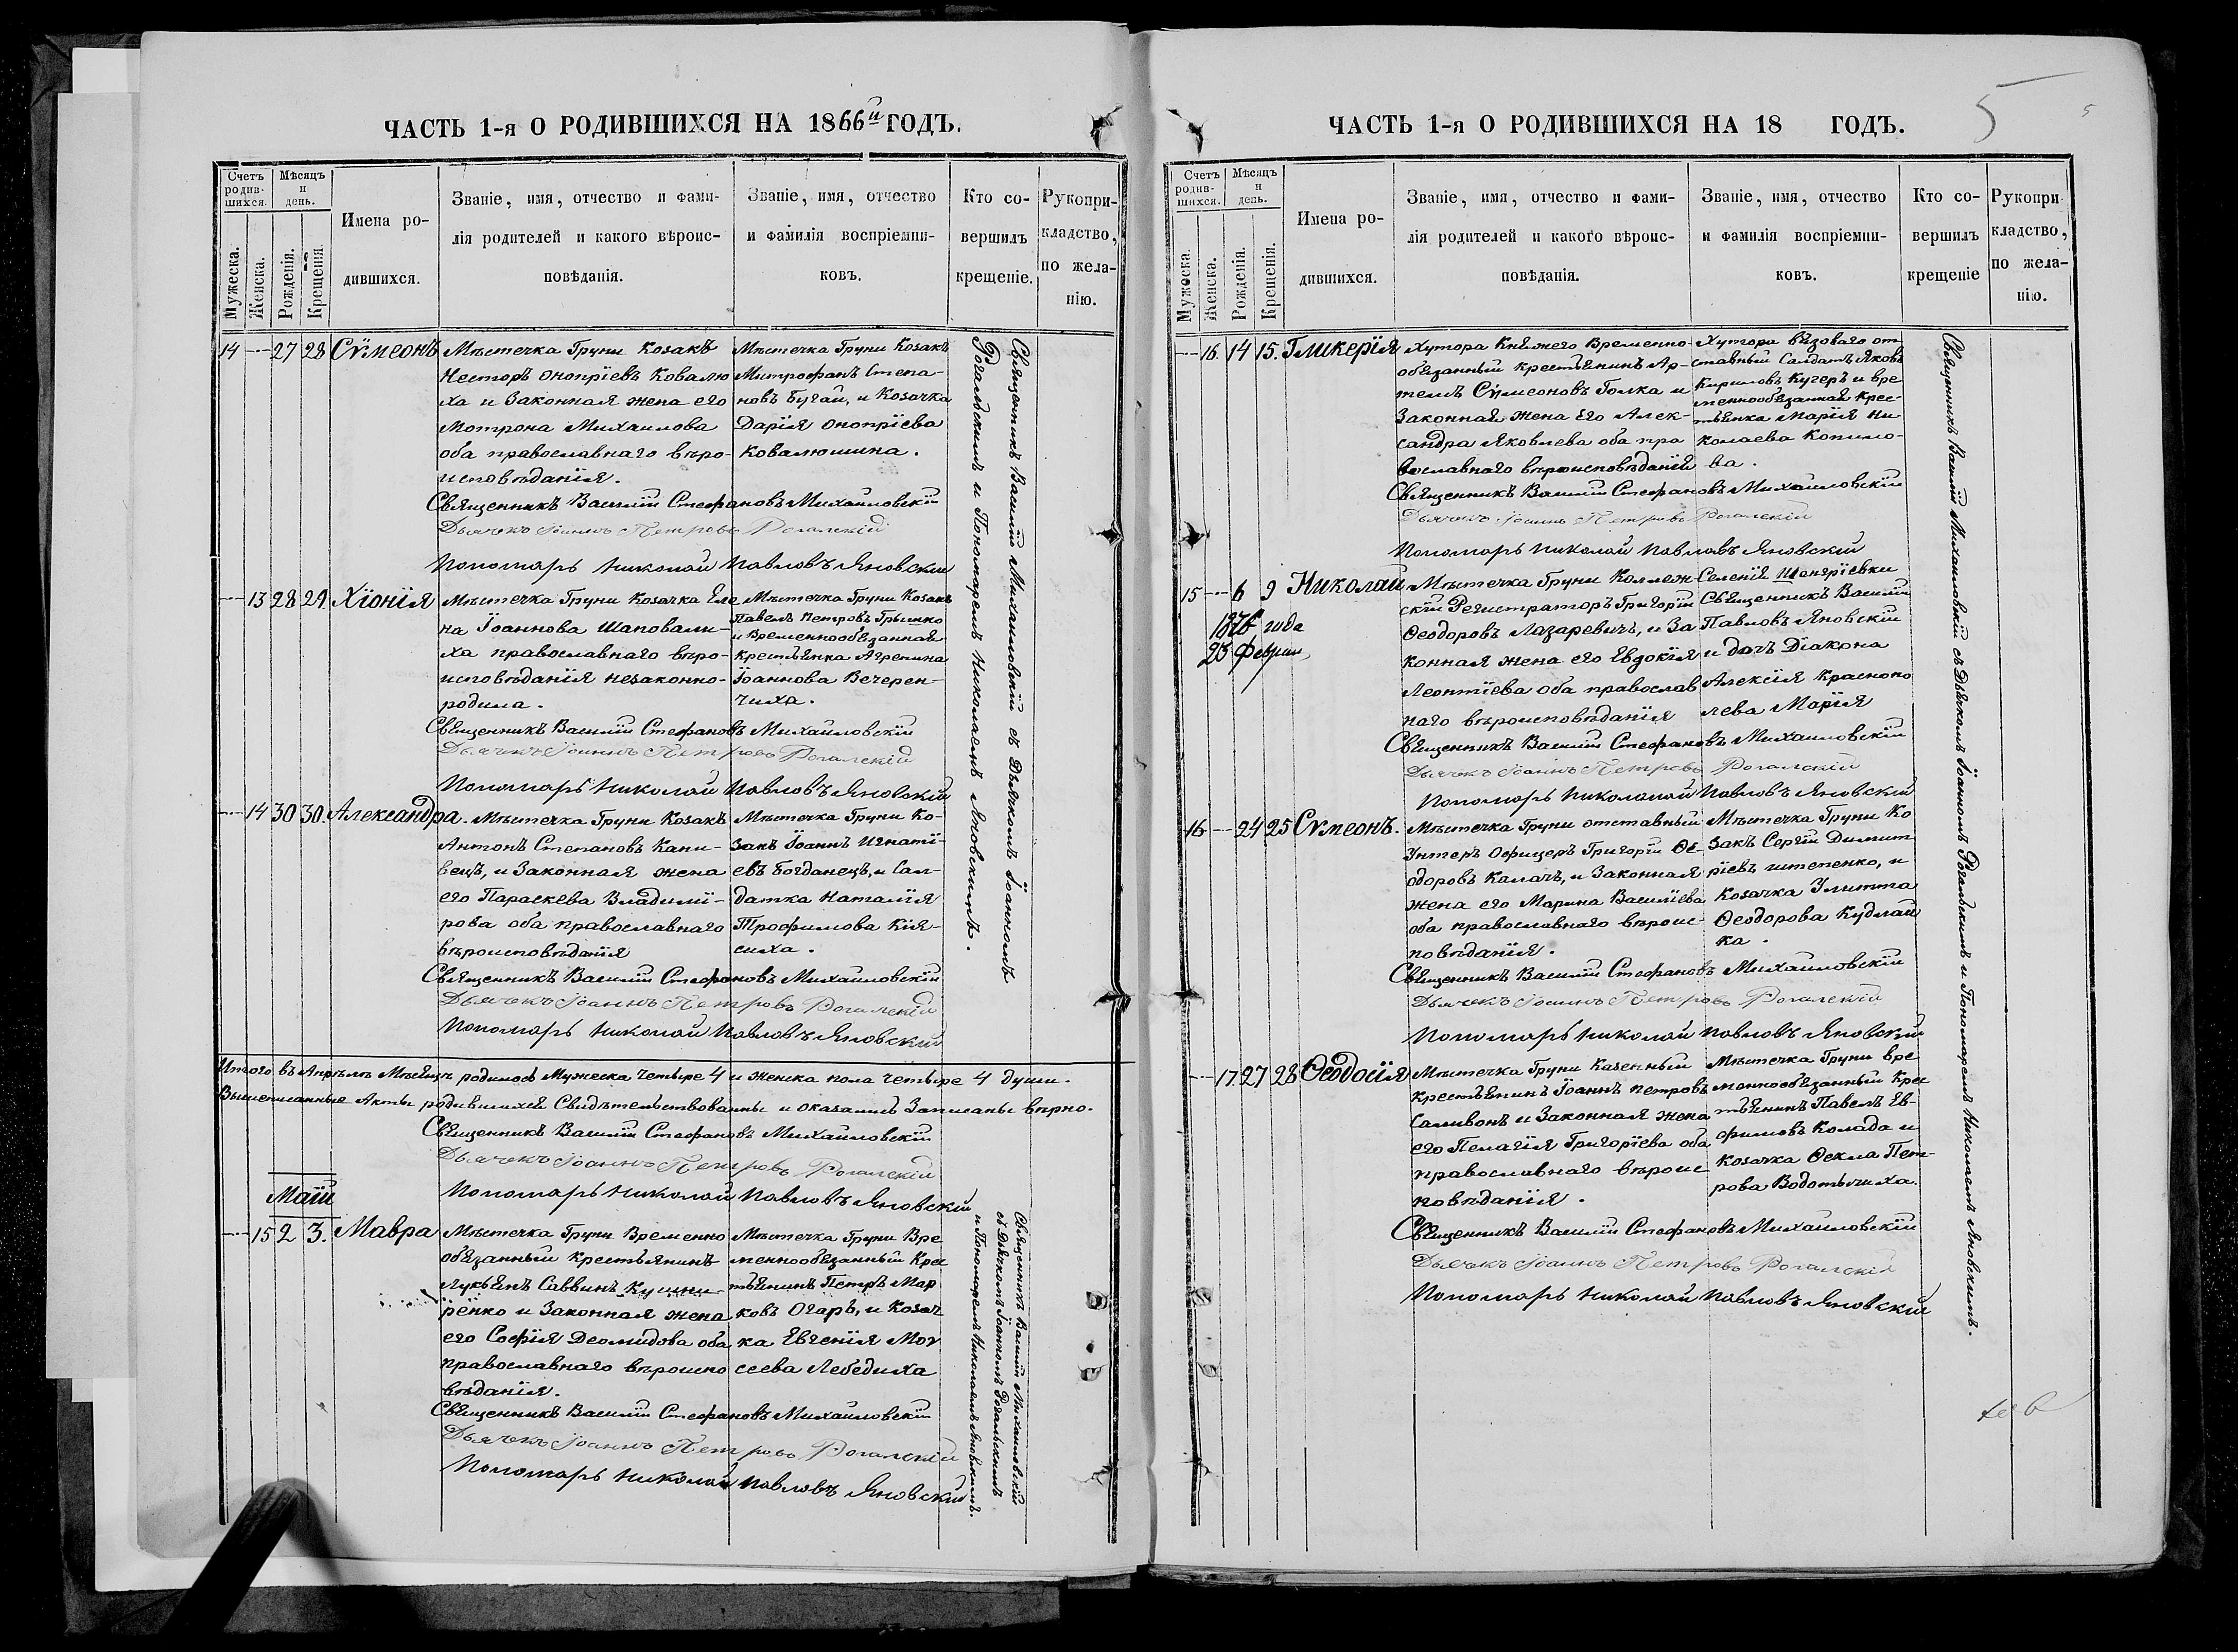 ЧАСТЬ 1-я О РОДИВШИХСЯ НА 1866й ГОДЪ.
Счетъ родившихся.
Мѣсяцъ и день.
Мужеска.
Женска.
Рожденія.
Крещенія.
Имена родившихся.
Званіе, имя, отчество и фами-
лія родителей и какого вѣроис-
повѣданія.
Званіе, имя, отчество
и фамилія воспріемни-
ковъ.
Кто со-
вершилъ
крещеніе.
Рукопри-
кладство,
по жела-
нію.
14 — 27 28 Сѵмеонъ
Мѣстечка Груни Козакъ
Несторъ Оноприевъ Ковалю
ха и Законная жена его
Мотрона Михаилова
оба православнаго вѣро-
исповѣданія.
Мѣстечка Груни Козакъ
Митрофанъ Степа-
новъ Бугай, и Козачка
Дарія Онопріева
Ковалюшина.
Священникъ Василій Стефановъ Михаиловскій
Дьячекъ Іоаннъ Петровъ Рогалскій
Пономарь Николай Павловъ Яновскій
— 13 28 29 Хіонія
Мѣстечка Груни Козачка Еле
на Іоаннова Шаповали-
ха православнаго вѣро-
исповѣданія незаконно-
родила.
Мѣстечка Груни Козакъ
Павелъ Петровъ Грынко
и Временнообязанная
крестьянка Агрепина
Іоаннова Вечерен-
чиха.
Священникъ Василій Стефановъ Михаиловскій
Дьячекъ Іоаннъ Петровъ Рогалскій
Пономарь Николай Павловъ Яновскій
— 14 30 30. Александра.
Мѣстечка Груни Козакъ
Антонъ Степановъ Капи-
вецъ, и Законная жена
его Параскева Владимі-
рова оба православнаго
вѣроисповѣданія
Мѣстечка Груни Ко-
закъ Іоаннъ Игнаті-
евъ Богданецъ, и Сал-
датка Наталія
Трофимова Кія-
сиха.
Священникъ Василій Стефановъ Михаиловскій
Дьячекъ Іоаннъ Петровъ Рогалскій
Пономарь Николай Павловъ Яновскій
Священникъ Василій Михаиловскій съ Дьячкомъ Іоанномъ
Рогальскимъ и Пономаремъ Николаемъ Яновскимъ.
Итого въ Апрѣлѣ Мѣсяцѣ родилось Мужеска четыре 4 и Женска пола четыре 4 души.
Вышеписанные Акты родившихся Свидѣтельствованы и оказались Записаны вѣрно.
Священникъ Василій Стефановъ Михаиловскій
Дьячекъ Іоаннъ Петровъ Рогалскій
Пономарь Николай Павловъ Яновскій
Маій
— 15 2 3. Мавра
Мѣстечка Груни Временно
обязанный крестьянинъ
Лукьянъ Саввинъ
ренко и Законная жена
его Софія Деомидова оба
православнаго вѣроиспо
вѣданія.
Мѣстечка Груни Вре
меннообязанный Крес
тьянинъ Петръ Мар
ковъ Огарь, и Козач
ка Евгенія Моѵ
сеева Лебедиха
Священникъ Василій Стефановъ Михаиловскій
Дьячекъ Іоаннъ Петровъ Рогалскій
Пономарь Николай Павловъ Яновскій
Священникъ Василій Михаиловскій
съ Дьячкомъ Іоанномъ Рогальскимъ
и Пономаремъ Николаемъ Яновскимъ.
ЧАСТЬ 1-я О РОДИВШИХСЯ НА 18 ГОДЪ.
5
5
Счетъ родившихся.
Мѣсяцъ и день.
Мужеска.
Женска.
Рожденія.
Крещенія.
Имена родившихся.
Званіе, имя, отчество и фами-
лія родителей и какого вѣроис-
повѣданія.
Званіе, имя, отчество
и фамилія воспріемни-
ковъ.
Кто со-
вершилъ
крещеніе
Рукопри
кладство,
по жела-
нію.
— 16. 14 15. Гликерія
Хутора Княжего Временно-
обязанный крестьянинъ Ар-
темъ Сѵмеоновъ Голка и
Законная жена его Алек-
сандра Яковлева оба пра
вославнаго вѣроисповѣданія
Хутора Вязоваго от
ставный Салдатъ Яковъ
Кириловъ Кучеръ и вре
меннообязанная крес-
тьянка Марія Ни
колаева Копило-
ва.
Священникъ Василій Стефановъ Михаиловскій
Дьячекъ Іоаннъ Петровъ Рогалскій
Пономарь Николай Павловъ Яновскій
15 — 6 9 Николай
1876 года
23 Феврал
Мѣстечка Груни Коллеж-
скій Регистраторъ Григорій
Ѳеодоровъ Лазаревичъ, и За
конная жена его Евдокія
Леонтіева оба православ
наго вѣроисповѣданія
Селенія
Священникъ Василій
Павловъ Яновскій
и дочь Діакона
Алексія Краснопо
лева Марія
Священникъ Василій Стефановъ Михаиловскій
Дьячекъ Іоаннъ Петровъ Рогалскій
Пономарь Николай Павловъ Яновскій
16 — 24 25 Сѵмеонъ.
Мѣстечка Груни отставный
Унтеръ Офицеръ Григорій Ѳе-
одоровъ Калачъ, и Законная
жена его Марина Василіева
оба православнаго вѣроис
повѣданія.
Мѣстечка Груни Ко
закъ Сергій Димит
ріевъ Штепенко, и
Козачка Улитта
Ѳеодорова Кудлай
ка.
Священникъ Василій Стефановъ Михаиловскій
Дьячекъ Іоаннъ Петровъ Рогалскій
Пономарь Николай Павловъ Яновскій
— 17. 27 28 Ѳеодосія
Мѣстечка Груни Казенный
Крестьянинъ Іоаннъ Петровъ
Саливонъ и Законная жена
его Пелагія Григоріева оба
православнаго вѣроис
повѣданія.
Мѣстечка Груни вре
меннообязанный Крес
тьянинъ Павелъ Ев-
фимовъ Колада и
Козачка Ѳекла Пет-
рова Водотычиха.
Священникъ Василій Стефановъ Михаиловскій
Дьячекъ Іоаннъ Петровъ Рогалскій
Пономарь Николай Павловъ Яновскій
Священникъ Василій Михаиловскій съ Дьячкомъ Іоанномъ Рогальскимъ и Пономаремъ Николаемъ Яновскимъ.